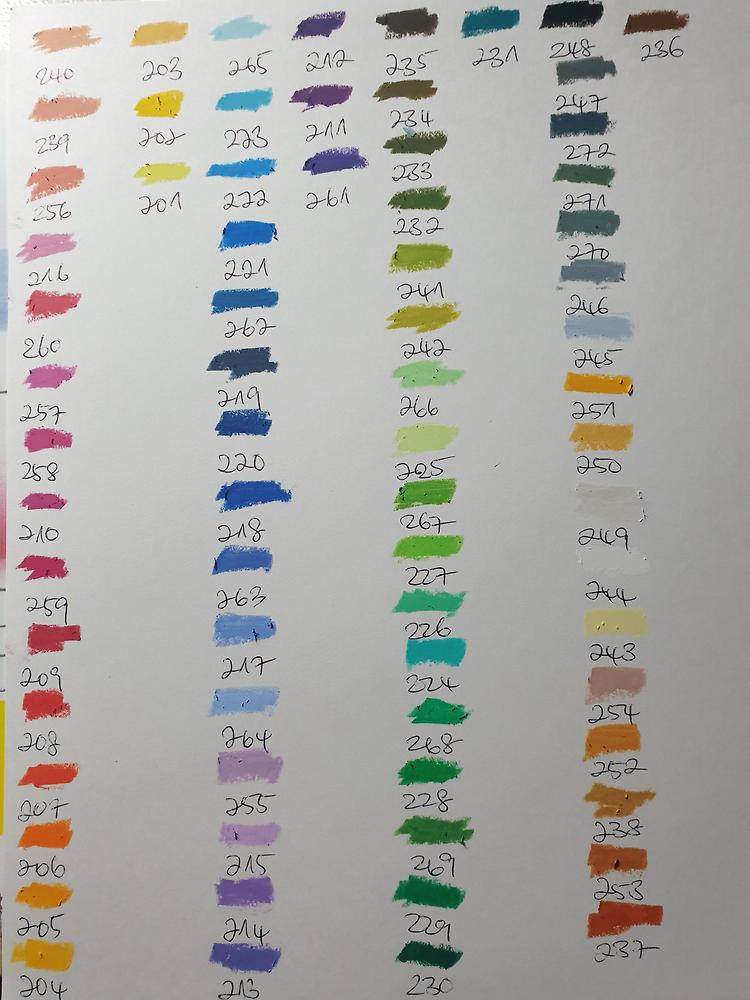 240
239
256
216
260
257
258
210
259
209
208
207
206
205
204
203
202
201
265
223
222
221
262
219
220
218
263
217
264
255
215
214
213
212
211
261
235
234
233
232
241
242
266
225
267
227
226
224
268
228
269
229
230
231
248
247
272
271
270
246
245
251
250
249
244
243
254
252
238
253
237
236